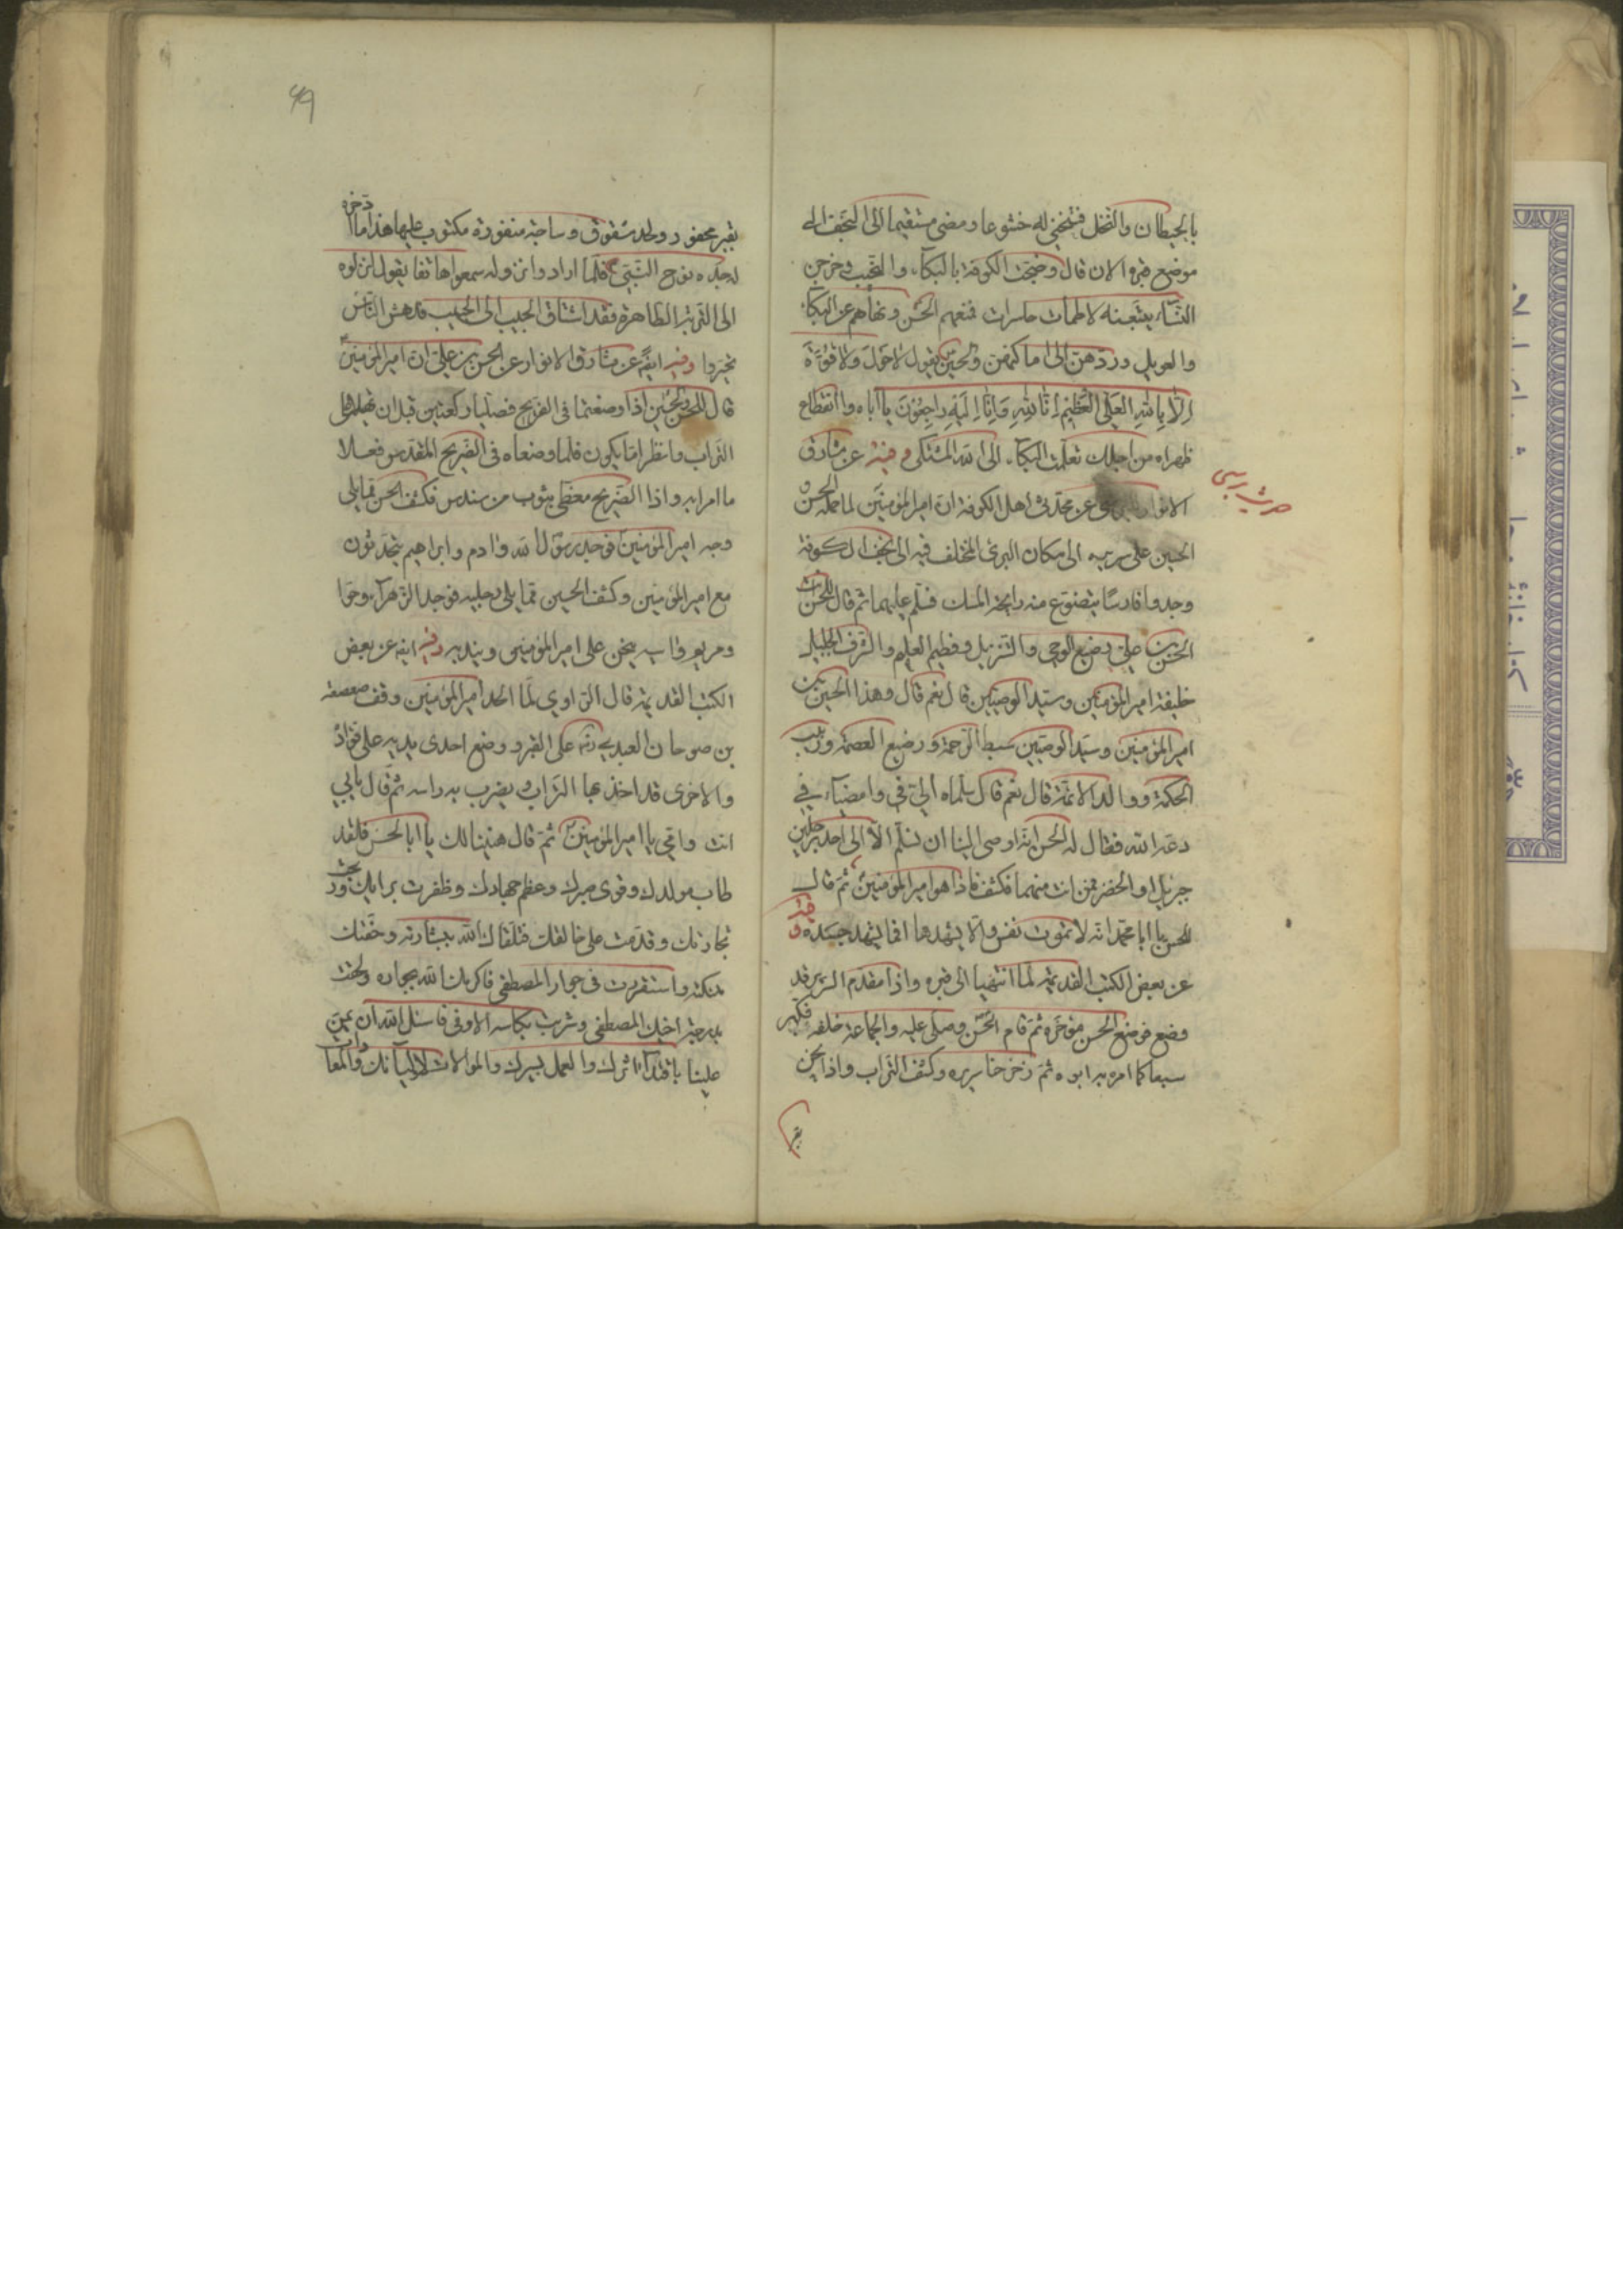 بالحيطان والنخل فتنحني له خشوعا ومضى مستقيما الى النجف الى
موضع قبره الان قال وضجت الكوفة بالبكاء والنحيب وخرجن
النساء يتبعنه لاطمات حاسرات فمنعهم الحسن ونهاهم عن البكاء
والعويل وردهن الى اماكنهن والحسين يقول لا حول ولا قوة
الا بالله العلي العظيم انا لله وانا اليه راجعون يا اباه وا انقطاع
ظهراه من اجلك تعلمت البكاء الى الله المشتكى وفيه عن مشارق
الانوار عن محدثي اهل الكوفة ان امير المؤمنين لما حمله الحسن و
الحسين على سريره الى مكان البئر المختلف فيه الى نجف الكوفة
وجدوا فارسا يتضوع منه رايحة المسك فسلم عليهما ثم قال للحسن انت
الحسن بن علي رضيع الوحي والتنزيل وفطيم العلم والشرف الجليل
خليفة امير المؤمنين وسيد الوصيين قال نعم قال وهذا الحسين بن
امير المؤمنين وسيد الوصيين سبط الرحمة ورضيع العصمة وربيب
الحكمة ووالد الائمة قال نعم قال سلماه الي وامضيا في
دعة الله فقال له الحسن انه اوصى الينا ان لا نسلم الا الى احد رجلين
جبرئيل او الخضر فمن انت منهما فكشف فاذا هو امير المؤمنين ثم قال
للحسن يا ابا محمد انه لا تموت نفس والا يشهدها افما يشهد جسده وفيه
عن بعض الكتب القديمة لما انتهيا الى قبره واذا مقدم السرير قد
وضع فوضع الحسن مؤخره ثم قام الحسن وصلى عليه والجماعة خلفه فكبر
سبعا كما امره به ابوه ثم زحزحنا سريره وكشف التراب واذا نحن
بقبر
حديث
بقبر محفور ولحد مشقوق وساجة منقورة مكتوب عليها هذا ما ادخره
له جده نوح النبي فلما ارادوا نزوله سمعوا هاتفا يقول انزلوه
الى التربة الطاهرة فقد اشتاق الحبيب الى الحبيب فدهش الناس
تحيروا وفيه ايضا عن مشارق الانوار عن الحسن بن علي ان امير المؤمنين
قال للحسن والحسين اذا وضعتماني في الضريح فصليا ركعتين قبل ان تهيلا علي
التراب وانظرا ما يكون فلما وضعاه في الضريح المقدس فعلا
ما امرا به واذا الضريح مغطى بثوب من سندس فكشف الحسن مما يلي
وجه امير المؤمنين فوجد رسول الله وادم وابراهيم يتحدثون
مع امير المؤمنين وكشف الحسين مما يلي رجليه فوجد الزهراء وحوا
ومريم واسيه ينحن على امير المؤمنين ويندبه وفيه ايضا عن بعض
الكتب القديمة قال الراوي لما الحد امير المؤمنين وقف صعصعة
بن صوحان العبدي على القبر ووضع احدى يديه على فؤاده
والاخرى قد اخذ بها التراب ويضرب به راسه ثم قال بابي
انت وامي يا امير المؤمنين ثم قال هنيئا لك يا ابا الحسن فلقد
طاب مولدك وقوى صبرك وعظم جهادك وظفرت برايك وربحت
تجارتك وقدمت على خالقك فتلقاك الله ببشارته وحفتك
ملائكته واستقررت في جوار المصطفى فاكرمك الله بجواره ولحقت
بدرجة اخيك المصطفى وشربت بكاسه الاوفى فاسئل الله ان يمن
علينا باقتدائنا اثرك والعمل بسيرتك والموالات لاوليائك والمعادات